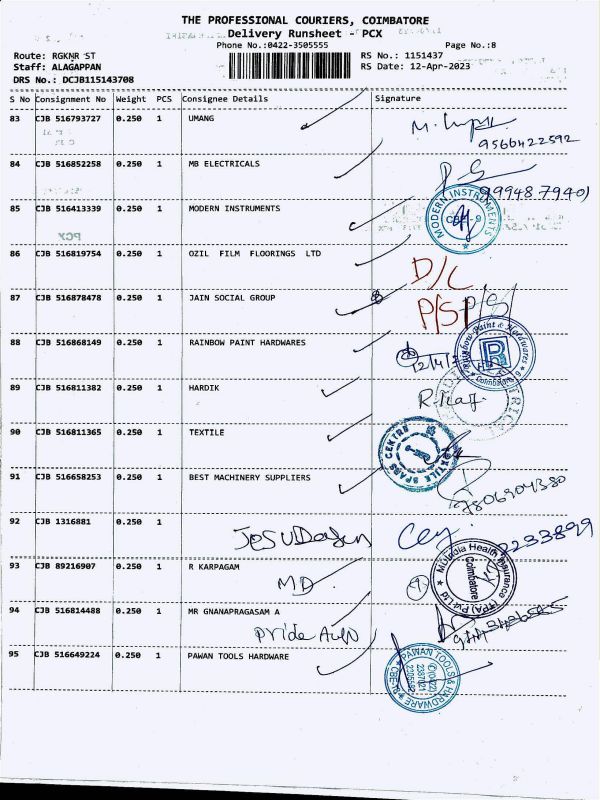 THE PROFESSIONAL COURIERS, COIMBATORE
Delivery Runsheet - PCX
Phone No.:0422-3505555 Page No.:8
Route: RGKNR ST RS No.: 1151437
Staff: ALAGAPPAN RS Date: 12-Apr-2023
DRS No.: DCJB115143708
S No Consignment No Weight PCS Consignee Details Signature
83 CJB 516793727 0.250 1 UMANG
9566422592
84 CJB 516852258 0.250 1 MB ELECTRICALS
85 CJB 516413339 0.250 1 MODERN INSTRUMENTS
MODERN INSTRUMENTS
CBE-9
PCX
86 CJB 516819754 0.250 1 OZIL FILM FLOORINGS LTD
D/L
87 CJB 516878478 0.250 1 JAIN SOCIAL GROUP
P/S
88 CJB 516868149 0.250 1 RAINBOW PAINT HARDWARES
Rainbow Paint & Hardwares
R
Coimbatore
12/4/
89 CJB 516811382 0.250 1 HARDIK
90 CJB 516811365 0.250 1 TEXTILE
TEXTILE SPARS CENTRE
91 CJB 516658253 0.250 1 BEST MACHINERY SUPPLIERS
9806904380
92 CJB 1316881 0.250 1
2233899
93 CJB 89216907 0.250 1 R KARPAGAM
MD
Health Insurance
(TPA) Pvt Ltd
Coimbatore
94 CJB 516814488 0.250 1 MR GNANAPRAGASAM A
Pride Auto
95 CJB 516649224 0.250 1 PAWAN TOOLS HARDWARE
PAWAN TOOLS & HARDWARE